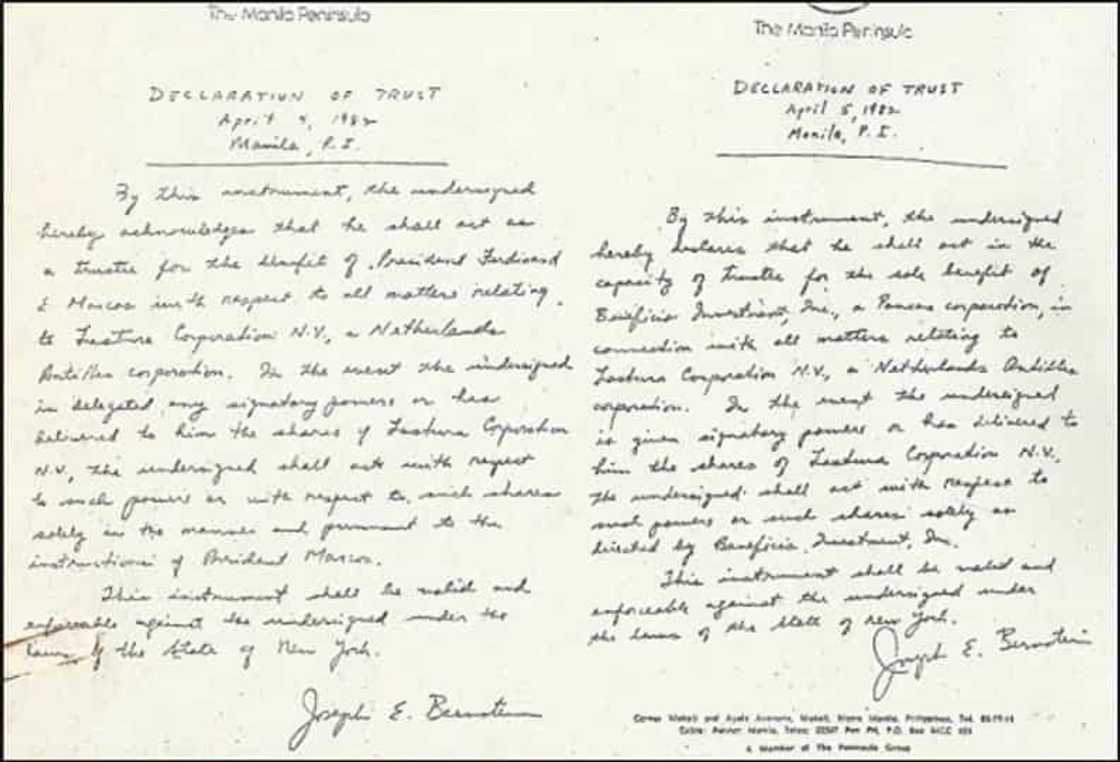 The Manila Peninsula
DECLARATION OF TRUST
April 4, 1982
Manila, P.I.
By this instrument, the undersigned
hereby acknowledges that he shall act as
a trustee for the benefit of President Ferdinand
E Marcos with respect to all matters relating
to Lastura Corporation N.V., a Netherlands
Antilles corporation. In the event the undersigned
is delegated any signatory powers or has
delivered to him the shares of Lastura Corporation
N.V., the undersigned shall act with respect
to such powers or with respect to such shares
solely in the manner and pursuant to the
instructions of President Marcos.
This instrument shall be valid and
enforceable against the undersigned under the
laws of the State of New York.
Joseph E. Bernstein
The Manila Peninsula
DECLARATION OF TRUST
April 5, 1982
Manila, P.I.
By this instrument, the undersigned
hereby declares that he shall act in the
capacity of trustee for the sole benefit of
Beneficio Investment, Inc., a Panama corporation, in
connection with all matters relating to
Lastura Corporation N.V., a Netherlands Antilles
corporation. In the event the undersigned
is given signatory powers or has delivered to
him the shares of Lastura Corporation N.V.,
the undersigned shall act with respect to
such powers or such shares solely as
directed by Beneficio Investment, Inc.
This instrument shall be valid and
enforceable against the undersigned under
the laws of the State of New York.
Joseph E. Bernstein
Corner Makati and Ayala Avenues, Makati, Metro Manila, Philippines, Tel.
Cable: Penhot Manila, Telex: 22507 Pen PH, P.O. Box MCC
A Member of The Peninsula Group